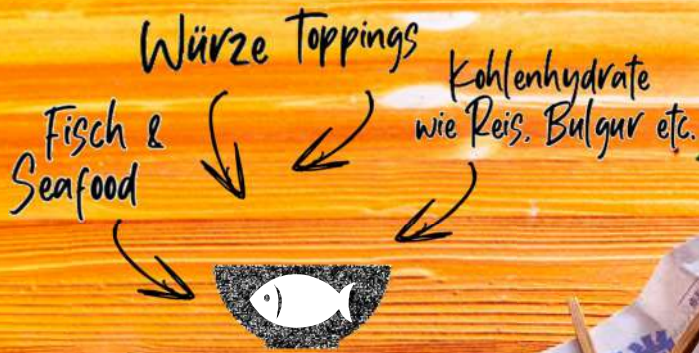 Würze Toppings
Kohlenhydrate
wie Reis, Bulgur etc.
Fisch &
Seafood